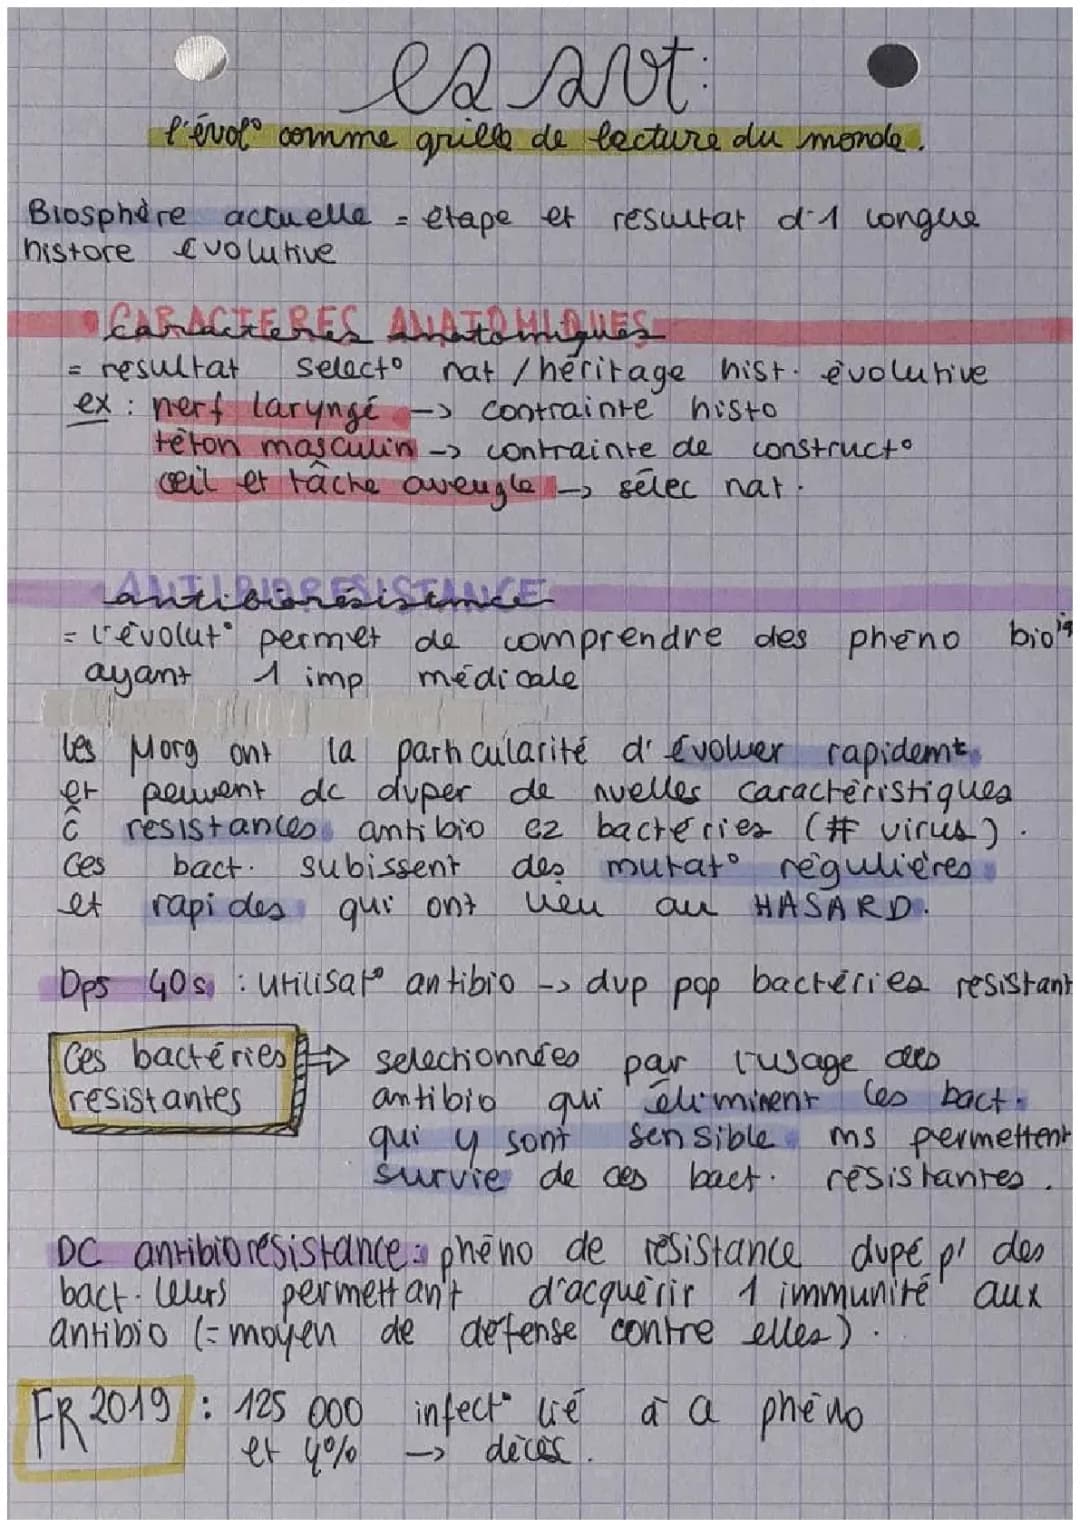 es svt:
l'évol° comme grille de lecture du monde.
Biosphère actuelle = étape et résultat d'1 longue
histore évolutive
CARACTERES ANATOMIQUES
caractères anatomiques
= resultat select° nat / héritage hist. évolutive
ex : nerf laryngé -> contrainte histo
têton masculin -> contrainte de construct°
œil et tâche aveugle -> sélec nat.
ANTIBIORESISTANCE
antibiorésistance
= l'évolut° permet de comprendre des phéno bioiq
ayant 1 imp médicale
les µorg ont la particularité d'évoluer rapidemt
et peuvent dc dvper de nvelles caractéristiques
c̃ résistances antibio ez bactéries (# virus).
Ces bact. subissent des mutat° régulières
et rapides qui ont lieu au HASARD.
Dps 40s : utilisat° antibio -> dvp pop bactéries résistant
Ces bactéries => selectionnées par l'usage des
résistantes antibio qui éliminent les bact.
qui y sont sensible ms permettent
survie de ces bact. résistantes.
DC antibiorésistance : phéno de résistance dvpé p' des
bact. leurs permettant d'acquérir 1 immunité aux
antibio (= moyen de défense contre elles).
FR 2019 : 125 000 infect° lié à a phéno
et 4% -> décès.